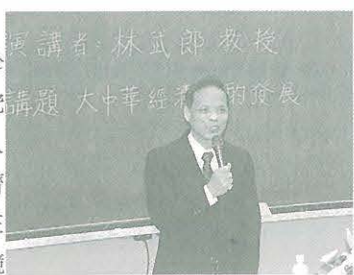 演講者：林武郎 教授
講題 大中華經濟 的發展